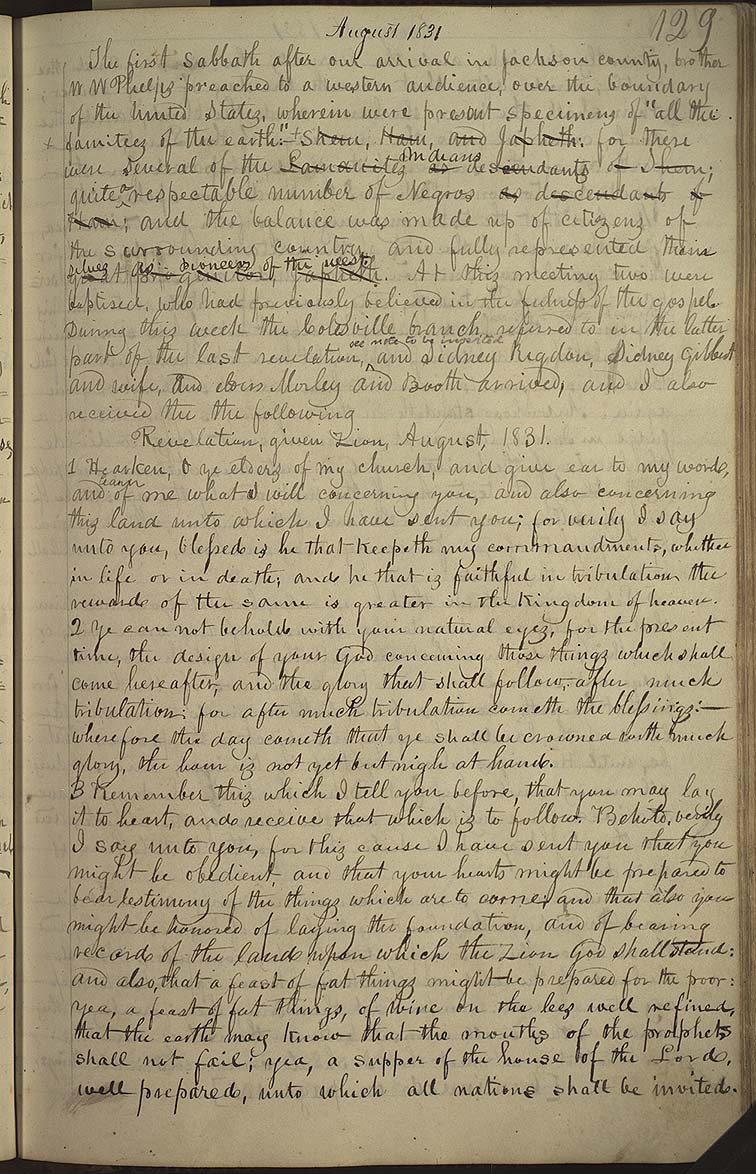 August 1831
129
The first Sabbath after our arrival in Jackson county, brother
W W Phelps preached to a western audience, over the boundary
of the United States, wherein were present specimens of "all the
families of the earth:" Shem, Ham, and Japheth: for there
were several of the Lamanites Indians as descendants of Shem;
quite a respectable number of Negros as descendants of
Ham; and the balance was made up of citizens of
the surrounding country, and fully represented them
selves as pioneers of the west
great progenitor, Japheth. At this meeting two were
baptised, who had previously believed in the fulness of the gospel.
During this week the Colesville branch, referred to in the latter
see note to be inserted
part of the last revelation, and Sidney Rigdon, Sidney Gilbert
and wife, and elders Morley and Booth arrived, and I also
received the the following
Revelation, given Zion, August, 1831.
1 Hearken, O ye elders of my church, and give ear to my words,
and learn of me what I will concerning you, and also concerning
this land unto which I have sent you; for verily I say
unto you, blessed is he that keepeth my commandments, whether
in life or in death; and he that is faithful in tribulation the
reward of the same is greater in the kingdom of heaven.
2 Ye can not behold with your natural eyes, for the present
time, the design of your God concerning those things which shall
come hereafter, and the glory that shall follow, after much
tribulation: for after much tribulation cometh the blessings:—
wherefore the day cometh that ye shall be crowned with much
glory, the hour is not yet but nigh at hand.
3 Remember this which I tell you before, that you may lay
it to heart, and receive that which is to follow. Behold, verily
I say unto you, for this cause I have sent you that you
might be obedient, and that your hearts might be prepared to
bear testimony of the things which are to come; and that also you
might be honored of laying the foundation, and of bearing
record of the land upon which the Zion God shall stand:
and also, that a feast of fat things might be prepared for the poor:
yea, a feast of fat things, of wine on the lees well refined,
that the earth may know that the mouths of the prolphets
shall not fail; yea, a supper of the house of the Lord,
well prepared, unto which all nations shall be invited.